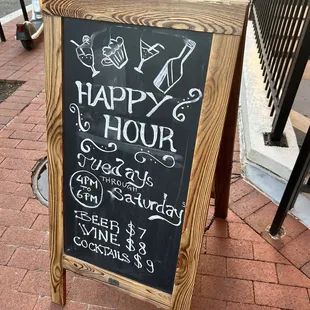 HAPPY
HOUR
Tuesdays
THROUGH
4PM
TO
6PM
Saturdays
BEER $7
WINE $8
COCKTAILS $9